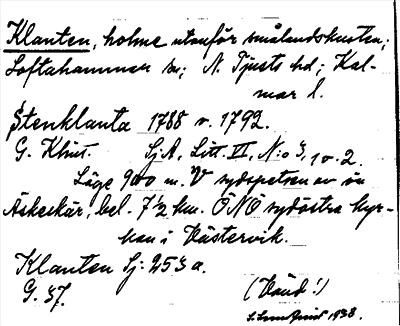 Klanten, holme utanför smålandskusten;
Loftahammar sn; N. Tjusts hd; Kal-
mar l.
Stenklanta 1788 o. 1792.
G. Klint. Sj.A, Litt. VI, N:o 3, 1 o. 2.
Läge 900 m. V sydspetsen av ön
Äskeskär, bel. 7½ km. ÖNÖ sydöstra kyr-
kan i Västervik.
Klanten Sj: 253 a.
G. 37.
(Vänd!)
1938.